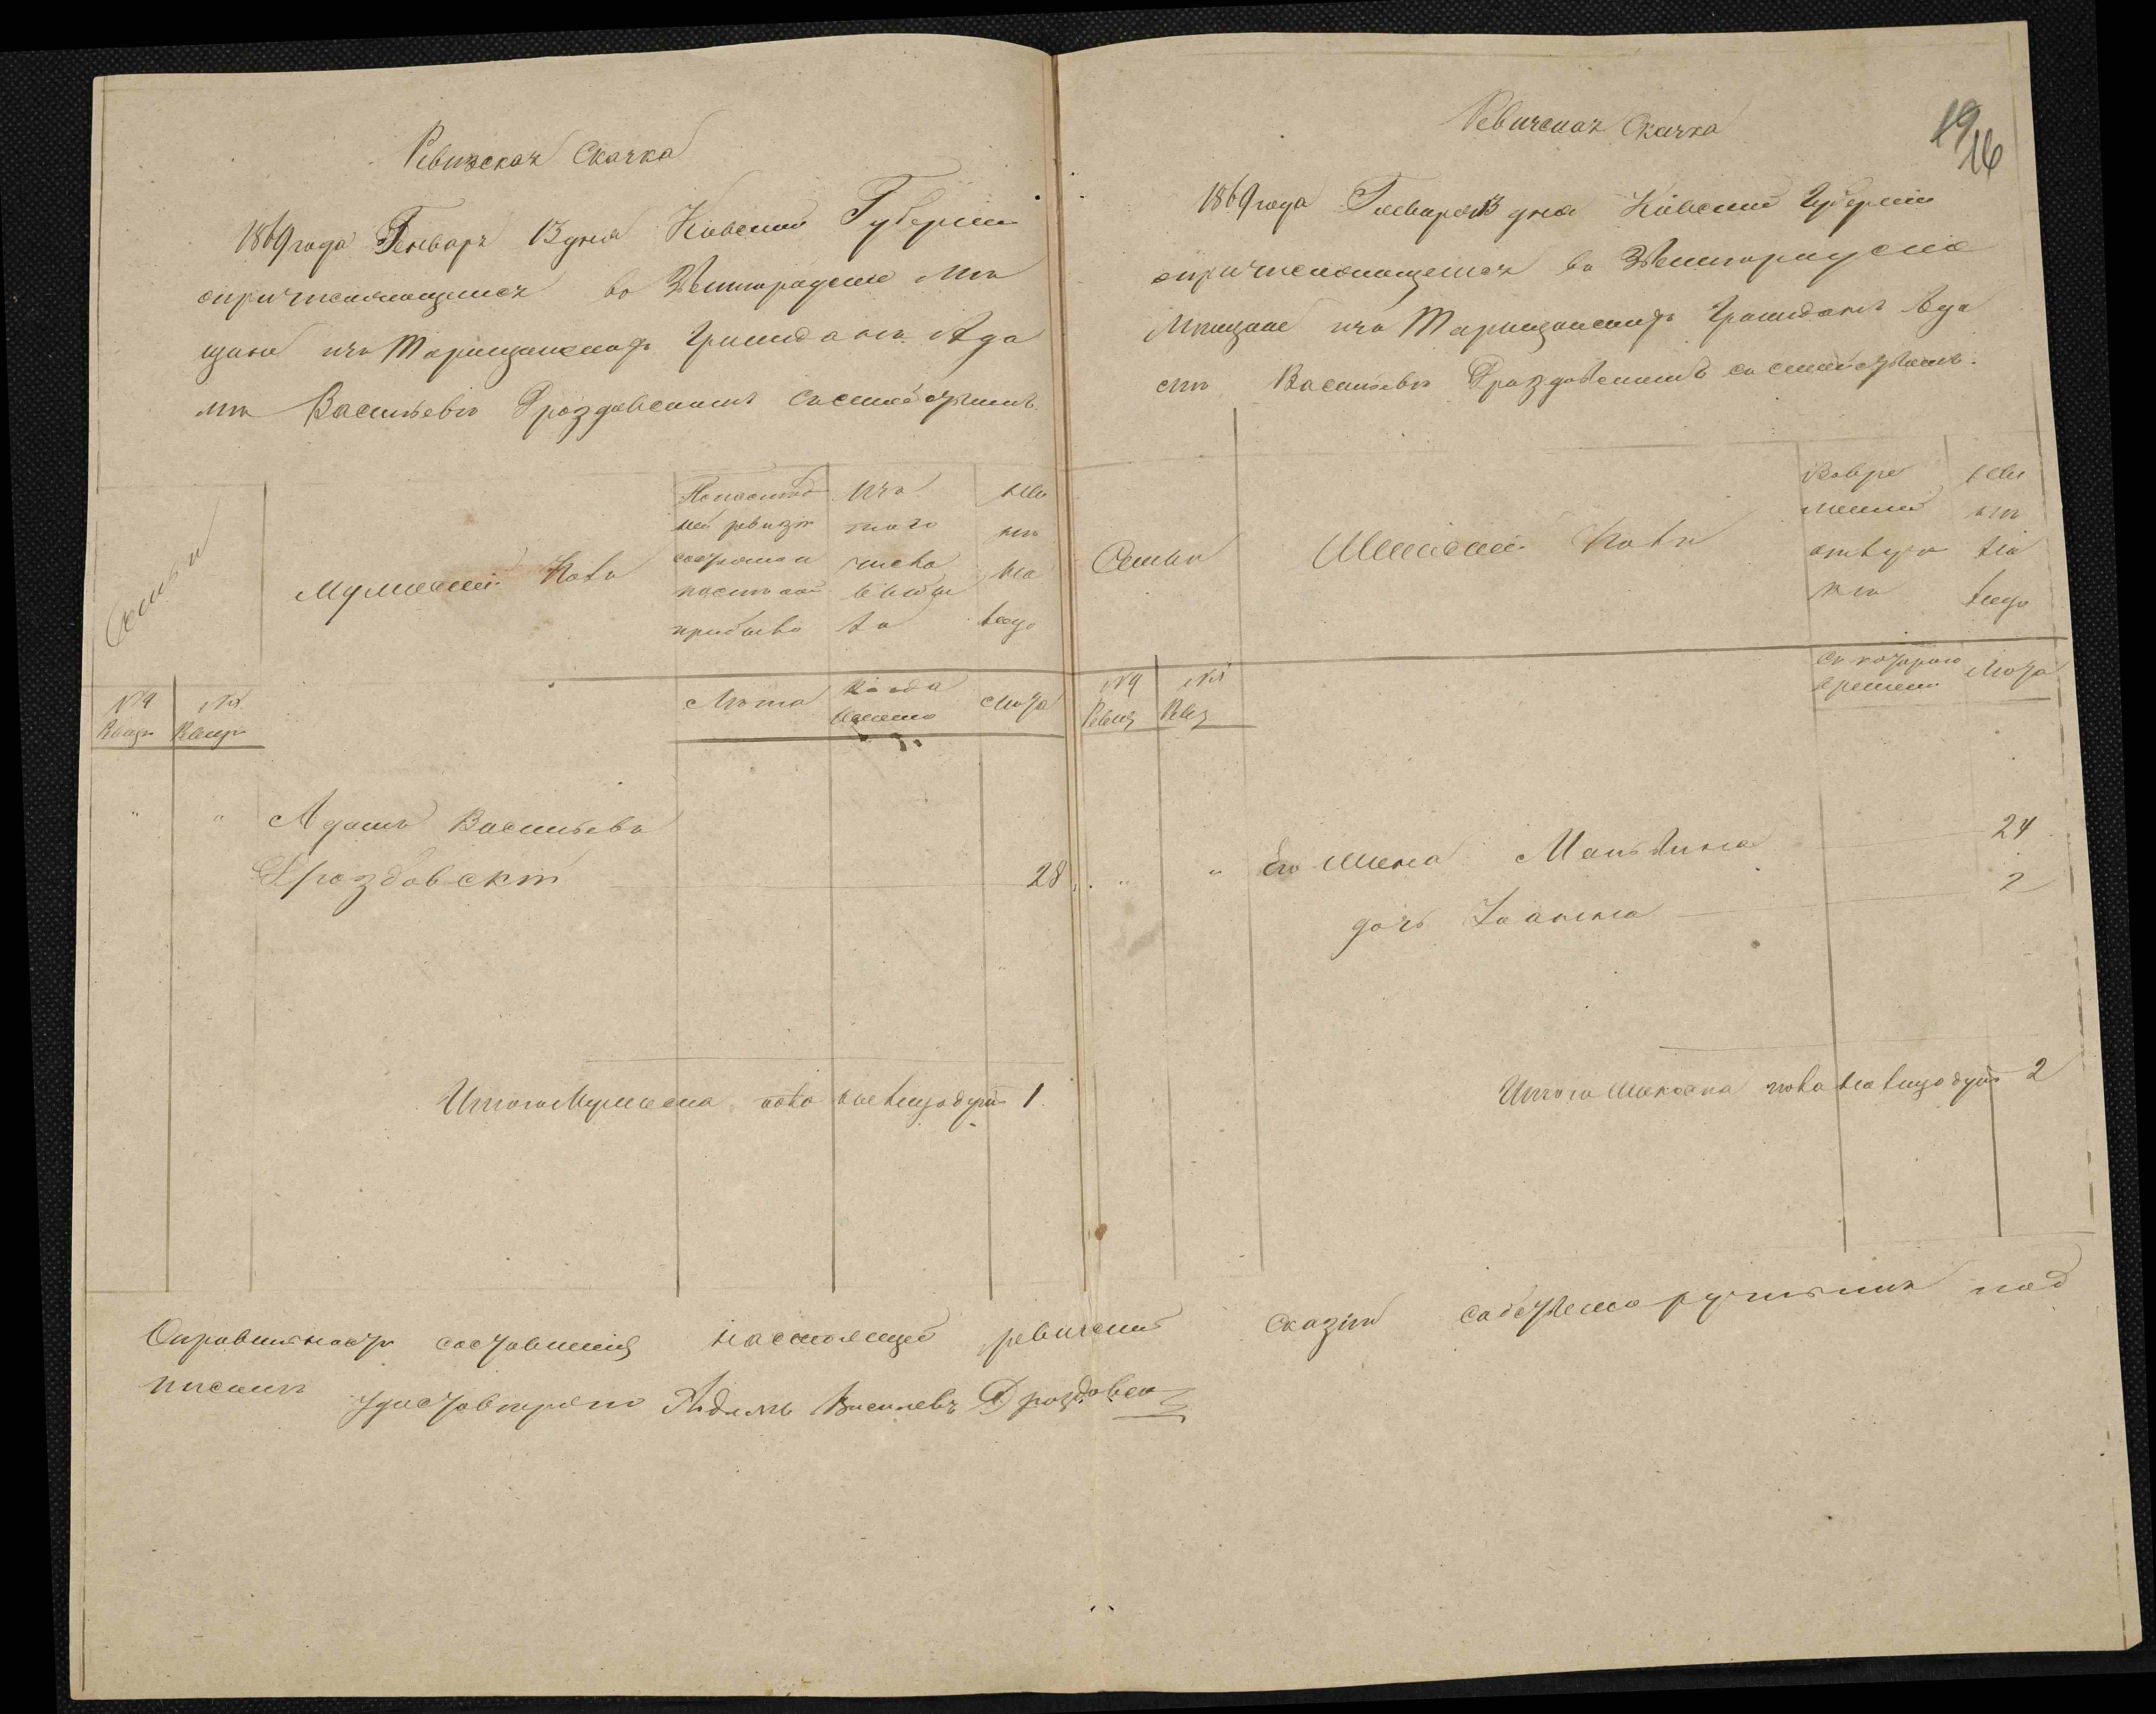 Ревизская Скачка
1869 года Генваря 13 дня Кіевской Губерніи
опричисляющимся во Звенигородские Мѣ
щане изъ Таращанскихъ Гражданъ Ада
мъ Васильевъ Дроздовскимъ съ семействомъ.
Семьи
Мужескій Полъ
Попослѣд
ней ревизіи
состояло и
послѣ оной
прибыло
Изъ
того
числа
выбы
ло
нынѣ
на
лицо
№ 9 Ревиз
№ Ревиз
Лѣта
Когда именно
Лѣта
" " Адамъ Васильевъ
Дроздовскій 28
Итого Мужеска пола на лицо душъ 1
Ревизская Скачка
19
16
1869 года Генваря 13 дня Кіевской Губерніи
опричисляющемся во Звенигородские
Мѣщане изъ Таращанскихъ Гражданъ Ада
мъ Васильевъ Дроздовскимъ съ семействомъ.
Семьи
Женскій Полъ
Вовре
менной
отлуч
кѣ
нынѣ
на
лицо
№ 9 Ревиз
№ Ревиз
Съ котораго времени
Лѣта
" " Его жена Мальвина 24
дочь Іоанна 2
Итого Женска пола на лицо душъ 2
Справильность составленія настоящей ревизской сказки собственноручнымъ под
писомъ удостовѣряю Адамъ Василевъ Дроздовск